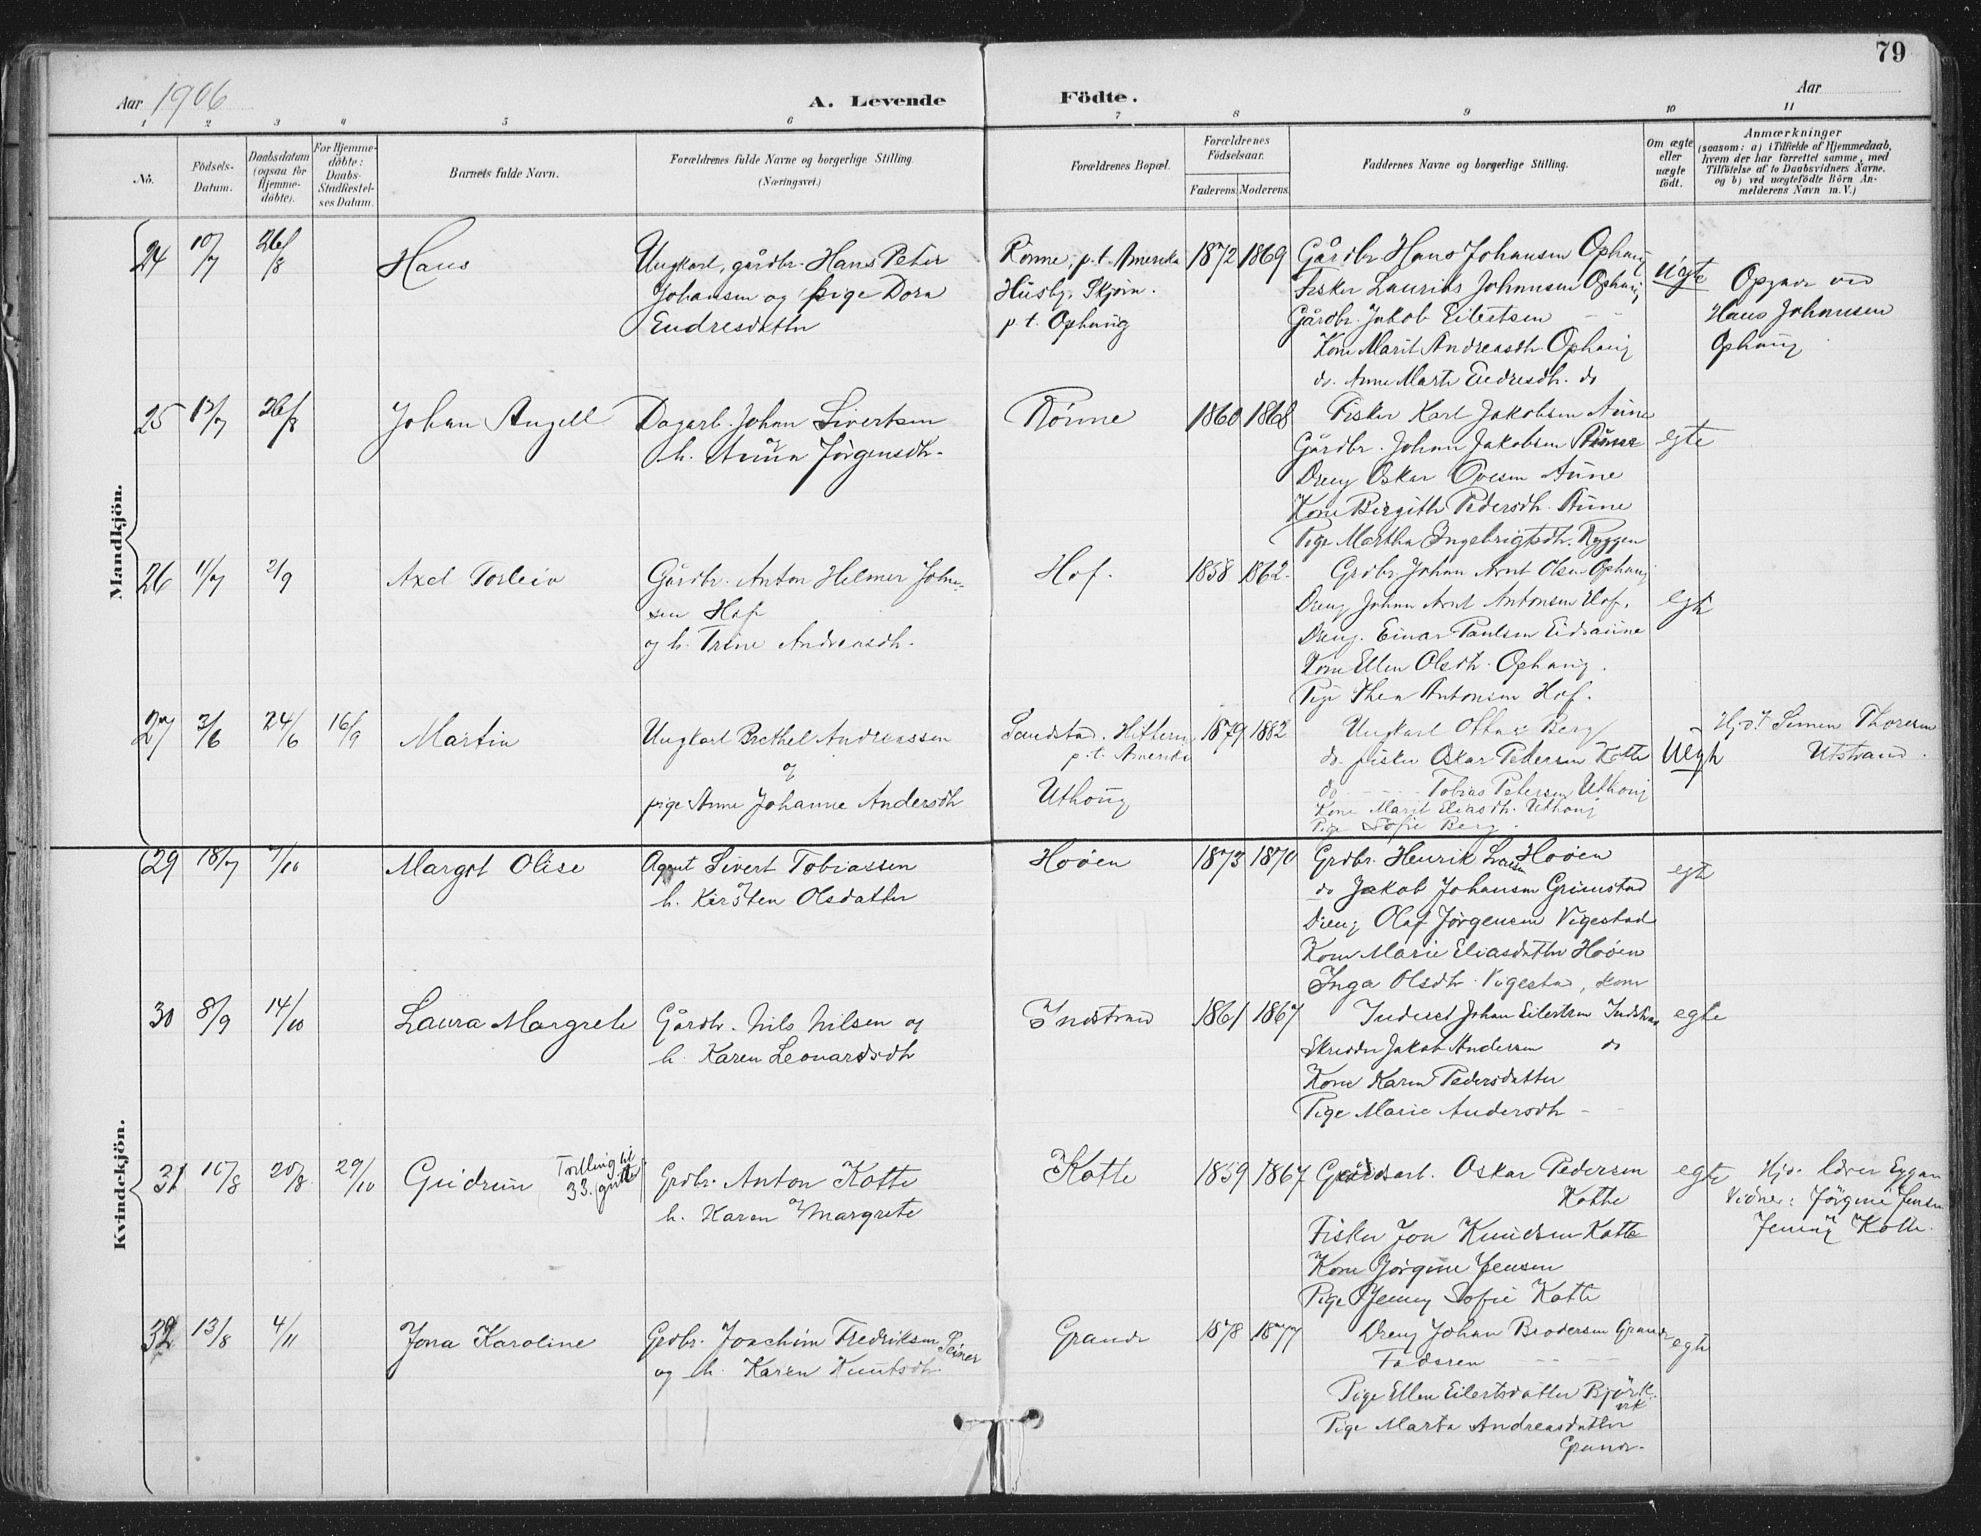 79
Aar 1906
A. Levende Födte.
Aar
1 2 3 4 5 6 7 8 9 10 11
No.
Födsels-Datum.
Daabsdatum (ogsaa for Hjemmedöbte).
For Hjemmedöbte: Daabs-Stadfæstelses Datum.
Barnets fulde Navn.
Forældrenes fulde Navne og borgerlige Stilling.
(Næringsvei.)
Forældrenes Bopæl.
Forældrenes Födselsaar.
Faderens. Moderens.
Faddernes Navne og borgerlige Stilling.
Om ægte eller uægte födt.
Anmærkninger
(saasom: a) i Tilfælde af Hjemmedaab,
hvem der har forrettet samme, med
Tilföielse af to Daabsvidners Navne.
og b) ved uægtefödte Börn Anmelderens Navn m. V.)
Mandkjön.
24 10/7 26/8 Hans
Ungkarl, gårdbr. Hans Peter
Johansen og pige Dora
Endresdatter
Rönne, p.t. Amerika
Husby, Skjörn.
p.t. Ophaug
1872 1869
Gårdbr Hans Johansen Ophaug
Fisker Laurits Johansen Ophaug
Gårdbr. Jakob Eilertsen - -
Kone Marit Andreasdtr. Ophaug
do. Anne Marte Endresdtr. do
uegte
Opgave ved
Hans Johansen
Ophaug
25 12/7 26/8 Johan Angell
Dagarb. Johan Sivertsen
h. Anna Jörgensdtr.
Rönne
1860 1868
Fisker Karl Jakobsen Aune
Gårdbr. Johan Jakobsen Aune
Dreng Oskar Ovesen Aune
Kone Birgithe Pedersdtr. Aune
Pige Martha Ingebrigtsdtr. Ryggen
egte
26 11/7 2/9 Axel Torleiv
Gårdbr. Anton Helmer Johnsen Hof
og h. Trine Andreasdtr.
Hof.
1858 1862
Grdbr. Johan Arnt Olsen Ophaug
Dreng Johan Arnt Antonsen Hof.
Dreng. Einar Paulsen Eidsaune
Kone Ellen Olsdtr. Ophaug.
Pige Thea Antonsen Hof.
egte
27 3/6 24/6 16/9 Martin
Ungkarl Brethel Andreassen
og
pige Anne Johanne Andersdtr
Sandstad. Hitteren
p.t. Amerika
Uthaug
1879 1882
Ungkarl Ottar Berg
do. fisker Oskar Pedersen Kotte
do - - - Tobias Petersen Uthaug
Kone Marit Eliasdtr. Uthaug
Pige Sofie Berg.
Uegte
Hj.d. Simen Thoresen
Utstrand.
Kvindekjön.
29 18/7 7/10 Margot Olise
Agent Sivert Tobiassen
h. Kirsten Olsdatter
Hoöen
1873 1870
Grdbr. Henrik Larsen Hoöen
do Jakob Johansen Grimstad
Dreng Olaf Jörgensen Vigestad
Kone Marie Eliasdatter Hoöen
Inga Olsdtr. Vigestad, kone
egte
30 8/9 14/10 Laura Margrete
Gårdbr. Nils Nilsen og
h. Karen Leonardsdtr
Indstrand
1861 1867
Inderst Johan Eilertsen Indstrand
Skredder Jakob Andersen do
Kone Karen Pedersdatter
Pige Marie Andersdtr -
egte
31 10/8 20/8 29/10 Gudrun
Tvilling til
33. gutte
Grdbr. Anton Kotte
h. Karen Margrete
Kotte
1859 1867
Gårdsarb. Oskar Pedersen
Kotte
Fisker Jon Knudsen Kotte
Kone Jörgine Jensen
Pige Jenny Sofie Kotte
egte
Hjd. lærer Eggan
Vidner: Jörgine Jensen
Jenny Kotte.
32 13/8 4/11 Jona Karoline
Grdbr. Joachim Fredriksen
og h. Karen Knutsdtr.
Grande
1878 1877
Dreng Johan Brodersen Grande
Faderen - -
Pige Ellen Eilertsdatter Björkvik
Pige Marta Andreasdatter
Grande.
egte